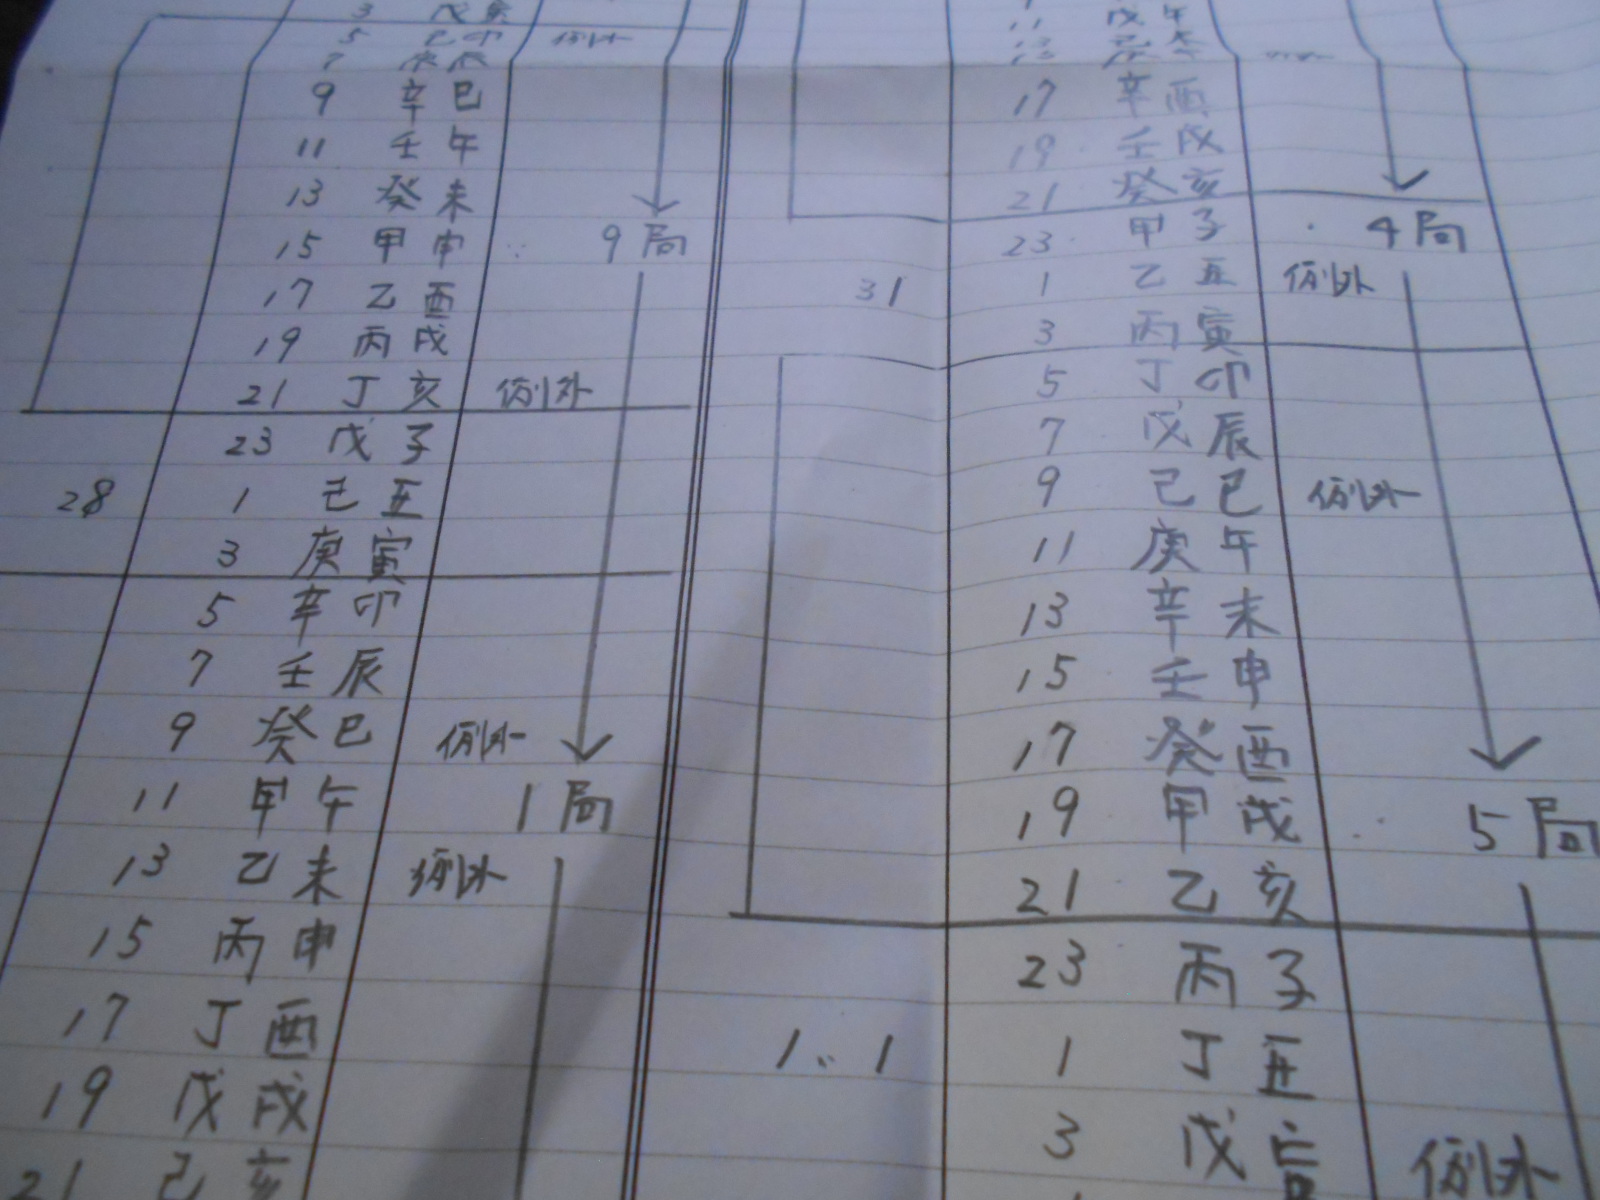 3 戊寅
5 己卯 例外
7 庚辰
9 辛巳
11 壬午
13 癸未
15 甲申 9局
17 乙酉
19 丙戌
21 丁亥 例外
23 戊子
28 1 己丑
3 庚寅
5 辛卯
7 壬辰
9 癸巳 例外
11 甲午 1局
13 乙未 例外
15 丙申
17 丁酉
19 戊戌
21 己亥
11 戊午
17 辛酉
19 壬戌
21 癸亥
23 甲子 4局
31 1 乙丑 例外
3 丙寅
5 丁卯
7 戊辰
9 己巳 例外
11 庚午
13 辛未
15 壬申
17 癸酉
19 甲戌 5局
21 乙亥
23 丙子
1.1 1 丁丑
3 戊寅 例外